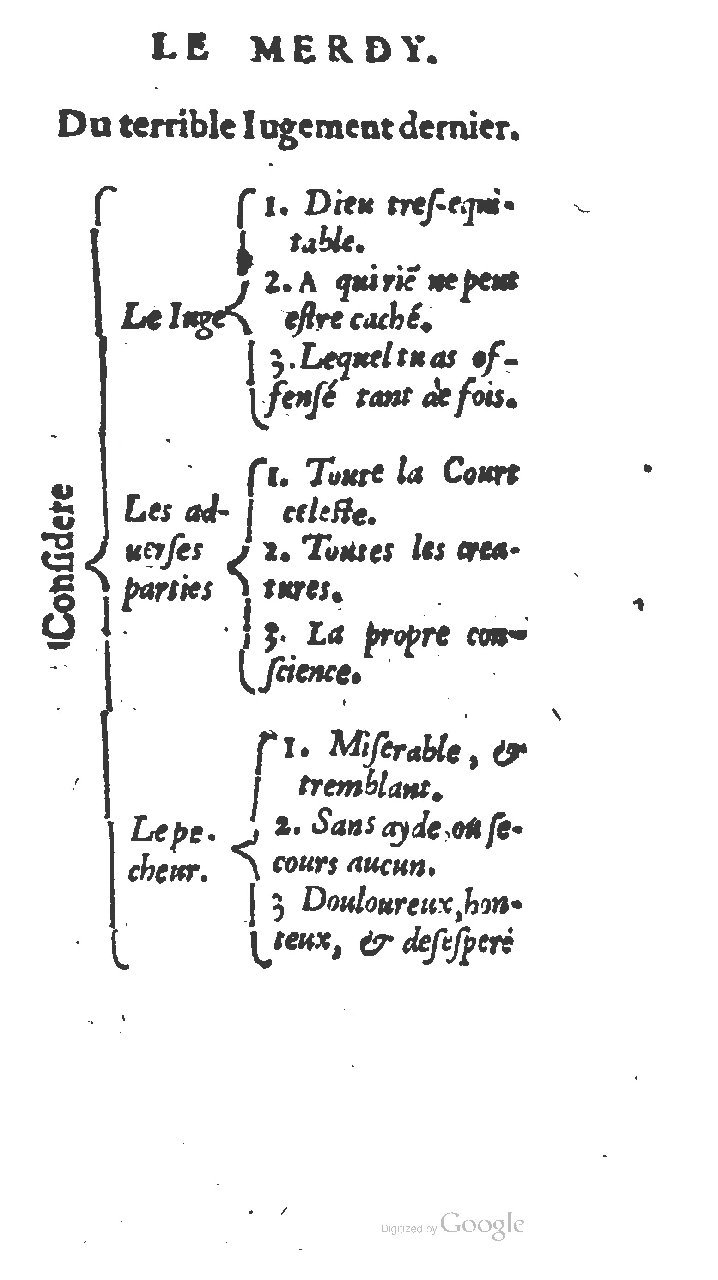 LE MERDY.
Du terrible Iugement dernier.
Conſidere
Le Iuge
1. Dieu treſ-equi-
table.
2. A qui riē ne peut
eſtre caché.
3. Lequel tu as of-
fenſé tant de fois.
Les ad-
uerſes
parties
1. Toute la Court
celeſte.
2. Toutes les crea-
tures.
3. La propre con-
ſcience.
Le pe-
cheur.
1. Miſerable, &
tremblant.
2. Sans ayde, ou ſe-
cours aucun.
3 Douloureux, hon-
teux, & deſeſperé
Digitized by Google